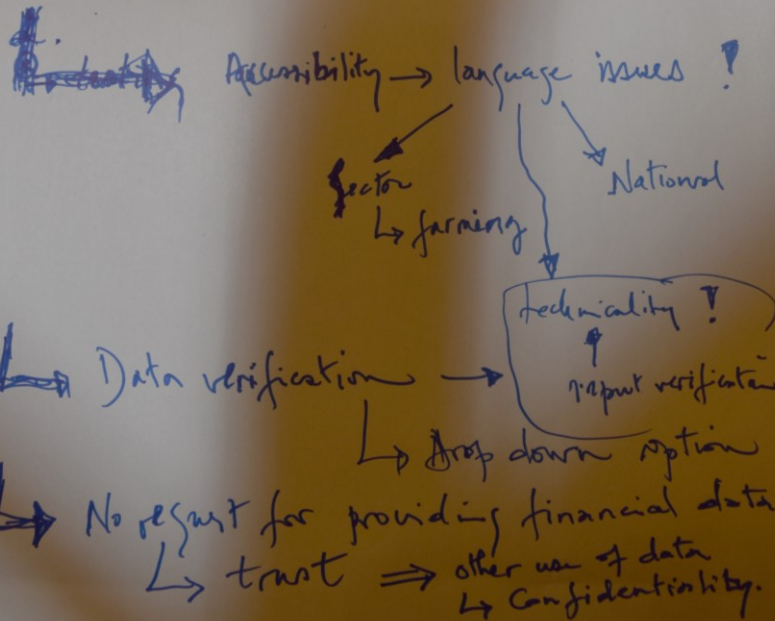 Accessibility → language issues !
Sector
National
↳ farming
technicality !
Data verification →
input verification
↳ Drop down option
→ No request for providing financial data
↳ trust ⇒ other use of data
↳ Confidentiality.